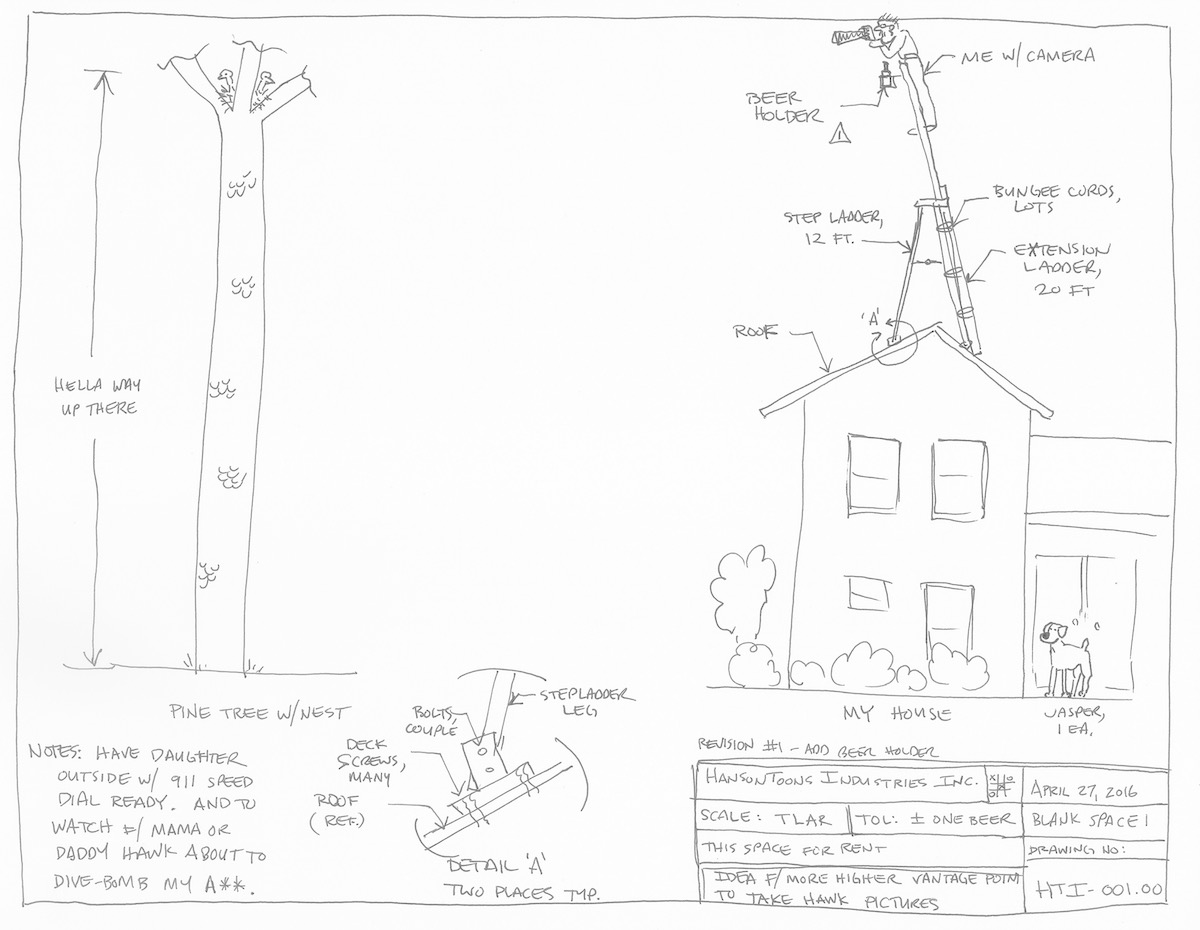 ME W/ CAMERA
BEER
HOLDER
1
BUNGEE CORDS,
LOTS
STEP LADDER,
12 FT.
EXTENSION
LADDER,
20 FT
'A'
ROOF
HELLA WAY
UP THERE
PINE TREE W/NEST
MY HOUSE
JASPER,
1 EA.
STEPLADDER
LEG
BOLTS,
COUPLE
DECK
SCREWS,
MANY
ROOF
(REF.)
DETAIL 'A'
TWO PLACES TYP.
NOTES: HAVE DAUGHTER
OUTSIDE W/ 911 SPEED
DIAL READY. AND TO
WATCH F/ MAMA OR
DADDY HAWK ABOUT TO
DIVE-BOMB MY A**.
REVISION #1 - ADD BEER HOLDER
HANSONTOONS INDUSTRIES INC.
APRIL 27, 2016
SCALE: TLAR
TOL: ± ONE BEER
BLANK SPACE 1
THIS SPACE FOR RENT
DRAWING NO:
IDEA F/ MORE HIGHER VANTAGE POINT
TO TAKE HAWK PICTURES
HTI-001.00